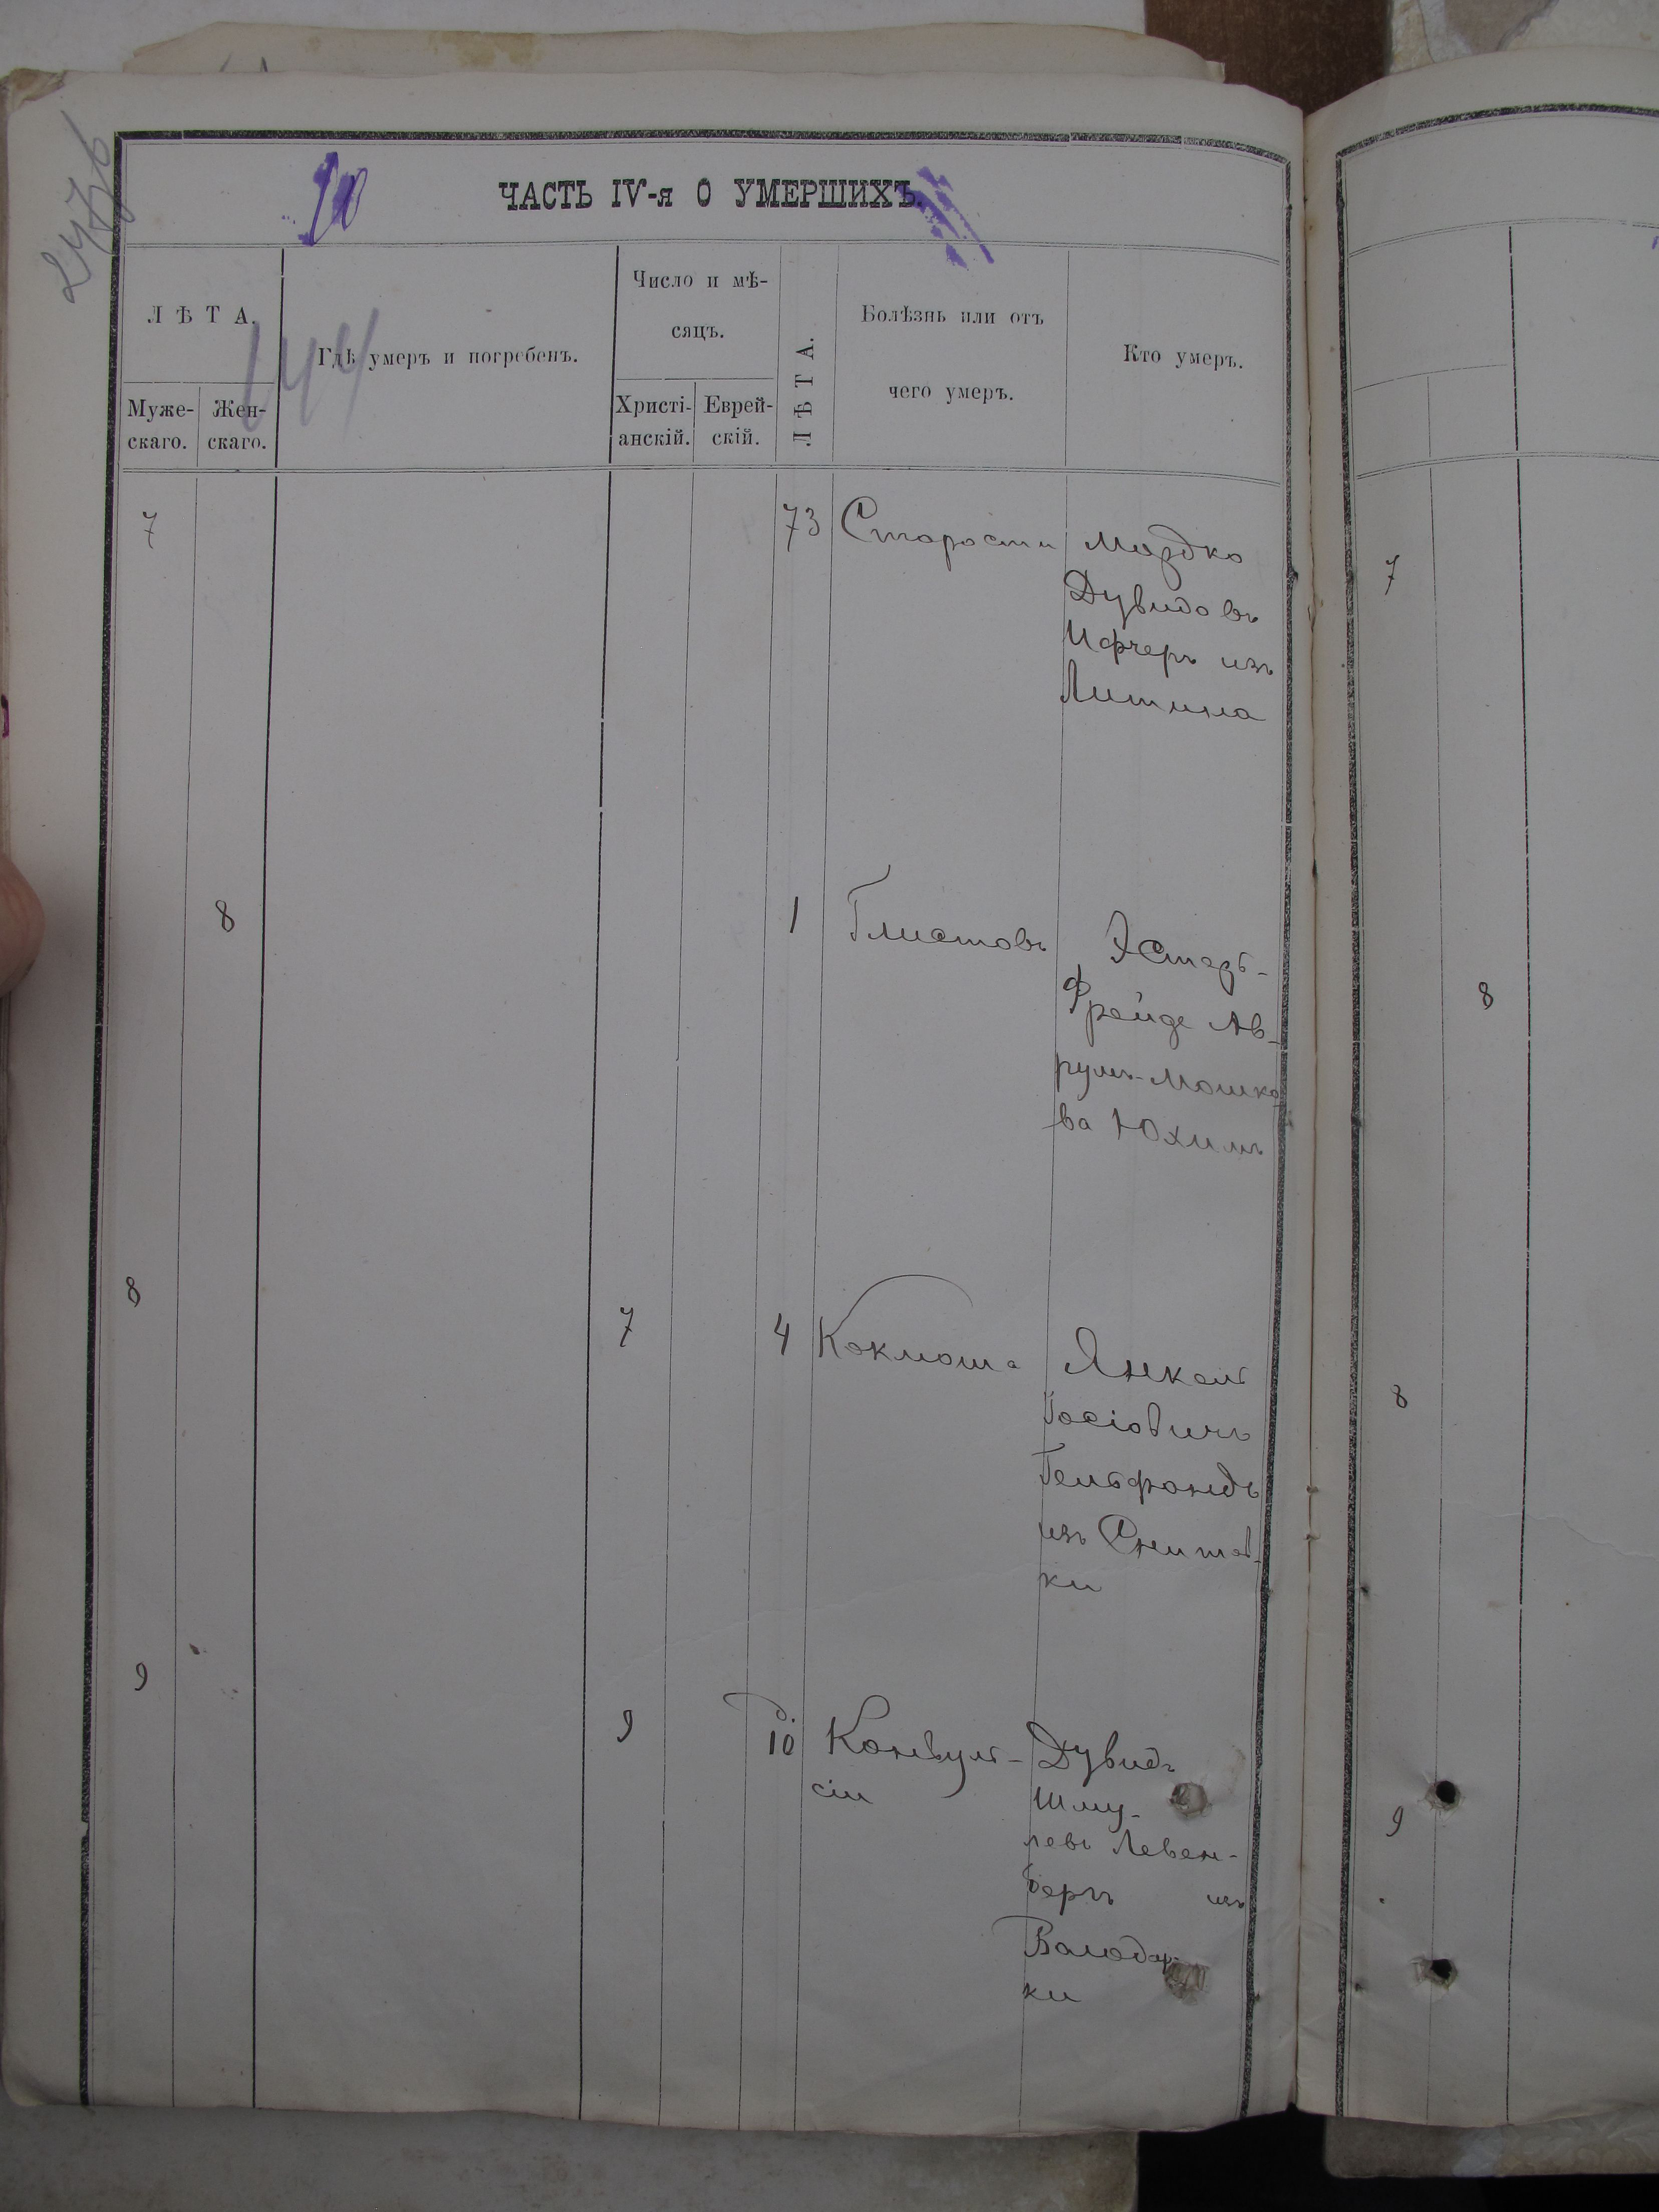 ЧАСТЬ IV-я О УМЕРШИХЪ.
144
ЛѢТА.
Муже-
скаго.
Жен-
скаго.
Гдѣ умеръ и погребенъ.
Число и мѣ-
сяцъ.
Христі-
анскій.
Еврей-
скій.
ЛѢТА.
Болѣзнь или отъ
чего умеръ.
Кто умеръ.
7 73 Старости
Дувидовъ
изъ
Литина
7
8 1 Глистовъ
Фрейде Ав-
румъ-Мошко
ва Юхимъ
8
8 7 4 Коклюша Янкель
Іосіовичъ
Гельфондъ
изъ Снитов-
ки
8
9 9 д. 10 Конвуль- Дувидъ
сіи Шму-
левъ Левен-
бергъ изъ
Володар-
ки
9